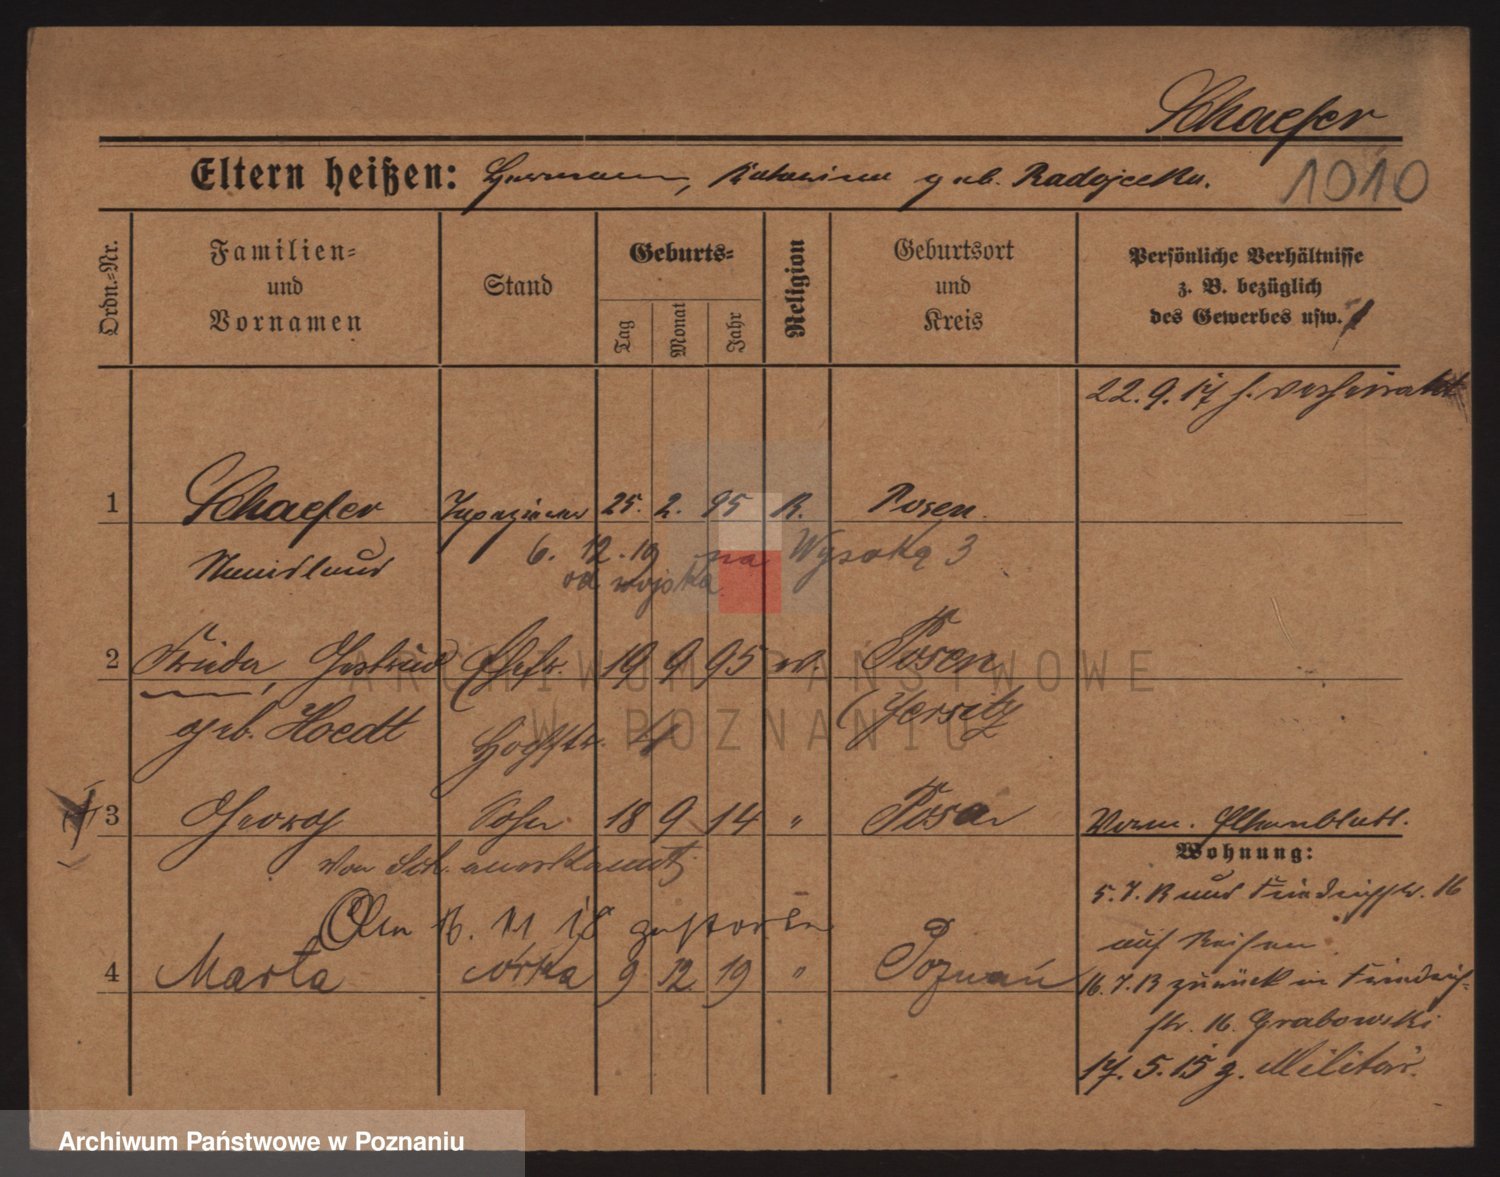 Schaefer
Eltern heißen: Hermann, Katarina geb. Radojecka.
1010
Ordn.-Nr.
Familien-
und
Vornamen
Stand
Geburts-
Tag
Monat
Jahr
Religion
Geburtsort
und
Kreis
Persönliche Verhältnisse
z. B. bezüglich
des Gewerbes usw.
22.9.17 verheiratet
1 Schaefer Tapezierer 25. 2. 95 K. Posen
6. 12. 19 na Wysoką 3
od wojska
2 Frieda, Gertrud Ehefr. 19 9 95 ev. Posen
geb. Hoedt Jersitz
3 Georg Sohn 18 9 14 " Posen
Von Sch. anerkannt
Am 16. 11 18 gestorben
4 Marta córka 9 12 19 " Poznań
Verm. Elternblatt.
Wohnung:
5.7.13 aus Friedrichstr. 16
auf Reisen
16.7.13 zurück in Friedrich-
str. 16. Grabowski
17.5.15 z. Militär.
ARCHIWUM PAŃSTWOWE
W POZNANIU
Archiwum Państwowe w Poznaniu